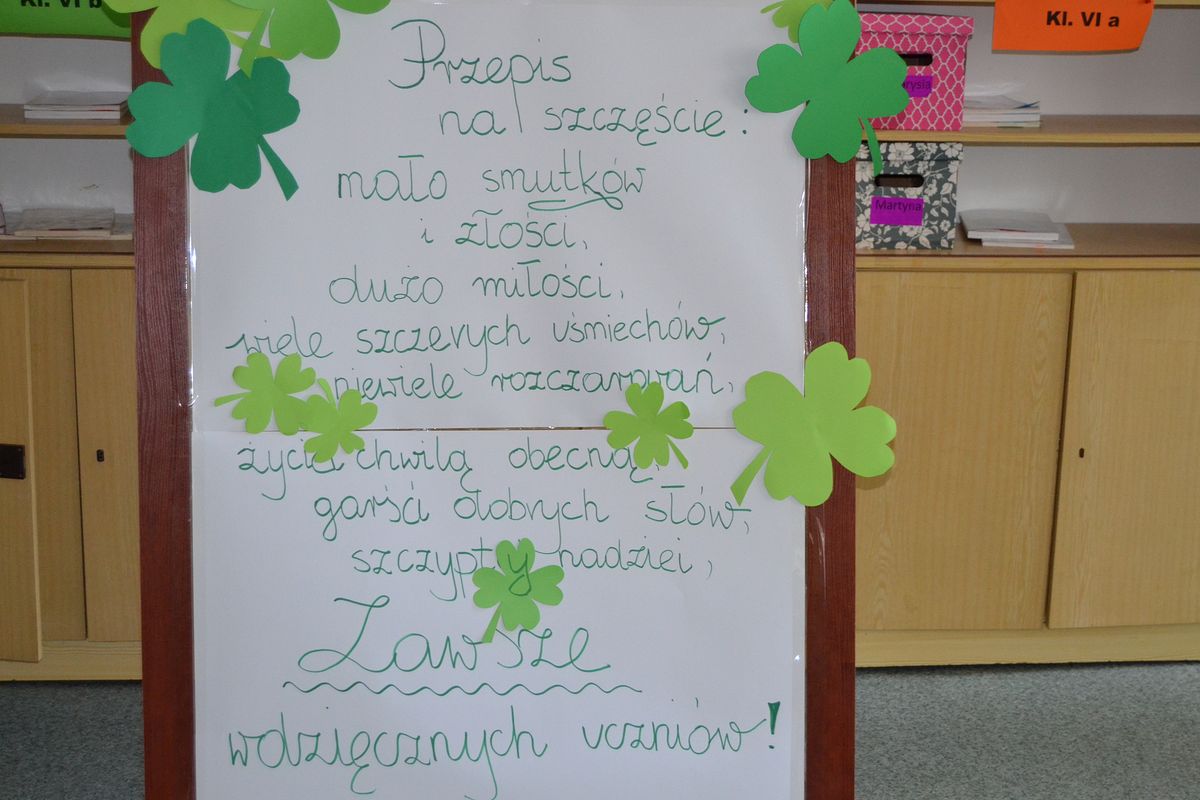 Kl. VI b
Kl. VI a
Przepis
na szczęście:
mało smutków
i złości,
dużo miłości,
wiele szczerych uśmiechów,
niewiele rozczarowań,
życia chwilą obecną,
garści dobrych słów,
szczypty nadziei,
Zawsze
wdzięcznych uczniów!
Martyna